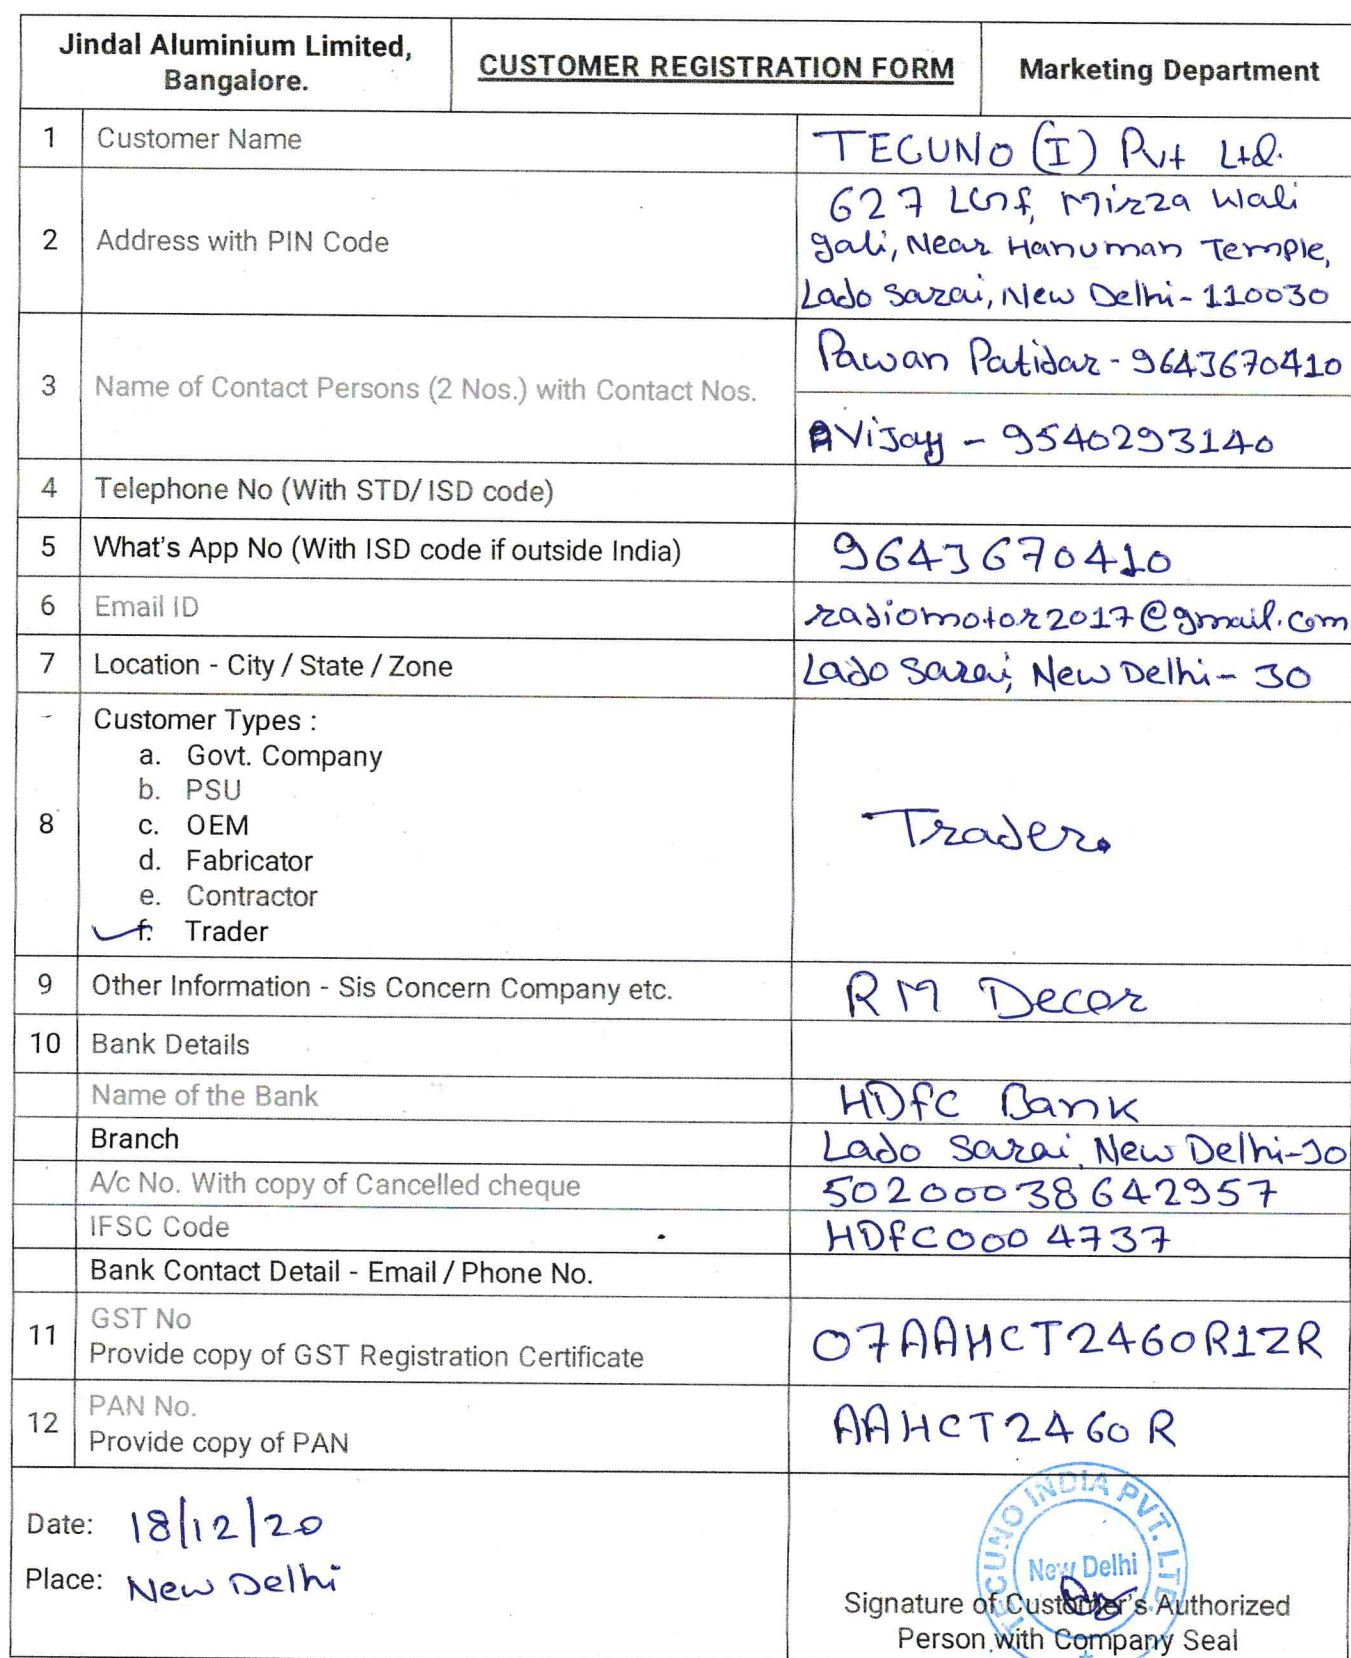 Jindal Aluminium Limited,
Bangalore.
CUSTOMER REGISTRATION FORM
Marketing Department
1 Customer Name TECUNO (I) Pvt Ltd.
2 Address with PIN Code
627 LGf, Mirza Wali
gali, Near Hanuman Temple,
Lado Sarai, New Delhi - 110030
3 Name of Contact Persons (2 Nos.) with Contact Nos.
Pawan Patidar - 9643670410
Vijay - 9540293140
4 Telephone No (With STD/ ISD code)
5 What's App No (With ISD code if outside India) 9643670410
6 Email ID radiomotor2017@gmail.com
7 Location - City / State / Zone Lado Sarai, New Delhi - 30
8 Customer Types :
a. Govt. Company
b. PSU
c. OEM
d. Fabricator
e. Contractor
f. Trader
Trader.
9 Other Information - Sis Concern Company etc. RM Decor
10 Bank Details
Name of the Bank HDfC Bank
Branch Lado Sarai, New Delhi-30
A/c No. With copy of Cancelled cheque 50200038642957
IFSC Code HDfC0004737
Bank Contact Detail - Email / Phone No.
11 GST No
Provide copy of GST Registration Certificate
07AAHCT2460R1ZR
12 PAN No.
Provide copy of PAN
AAHCT2460R
Date: 18/12/20
Place: New Delhi
TECUNO INDIA PVT. LTD.
New Delhi
Signature of Customer's Authorized
Person with Company Seal